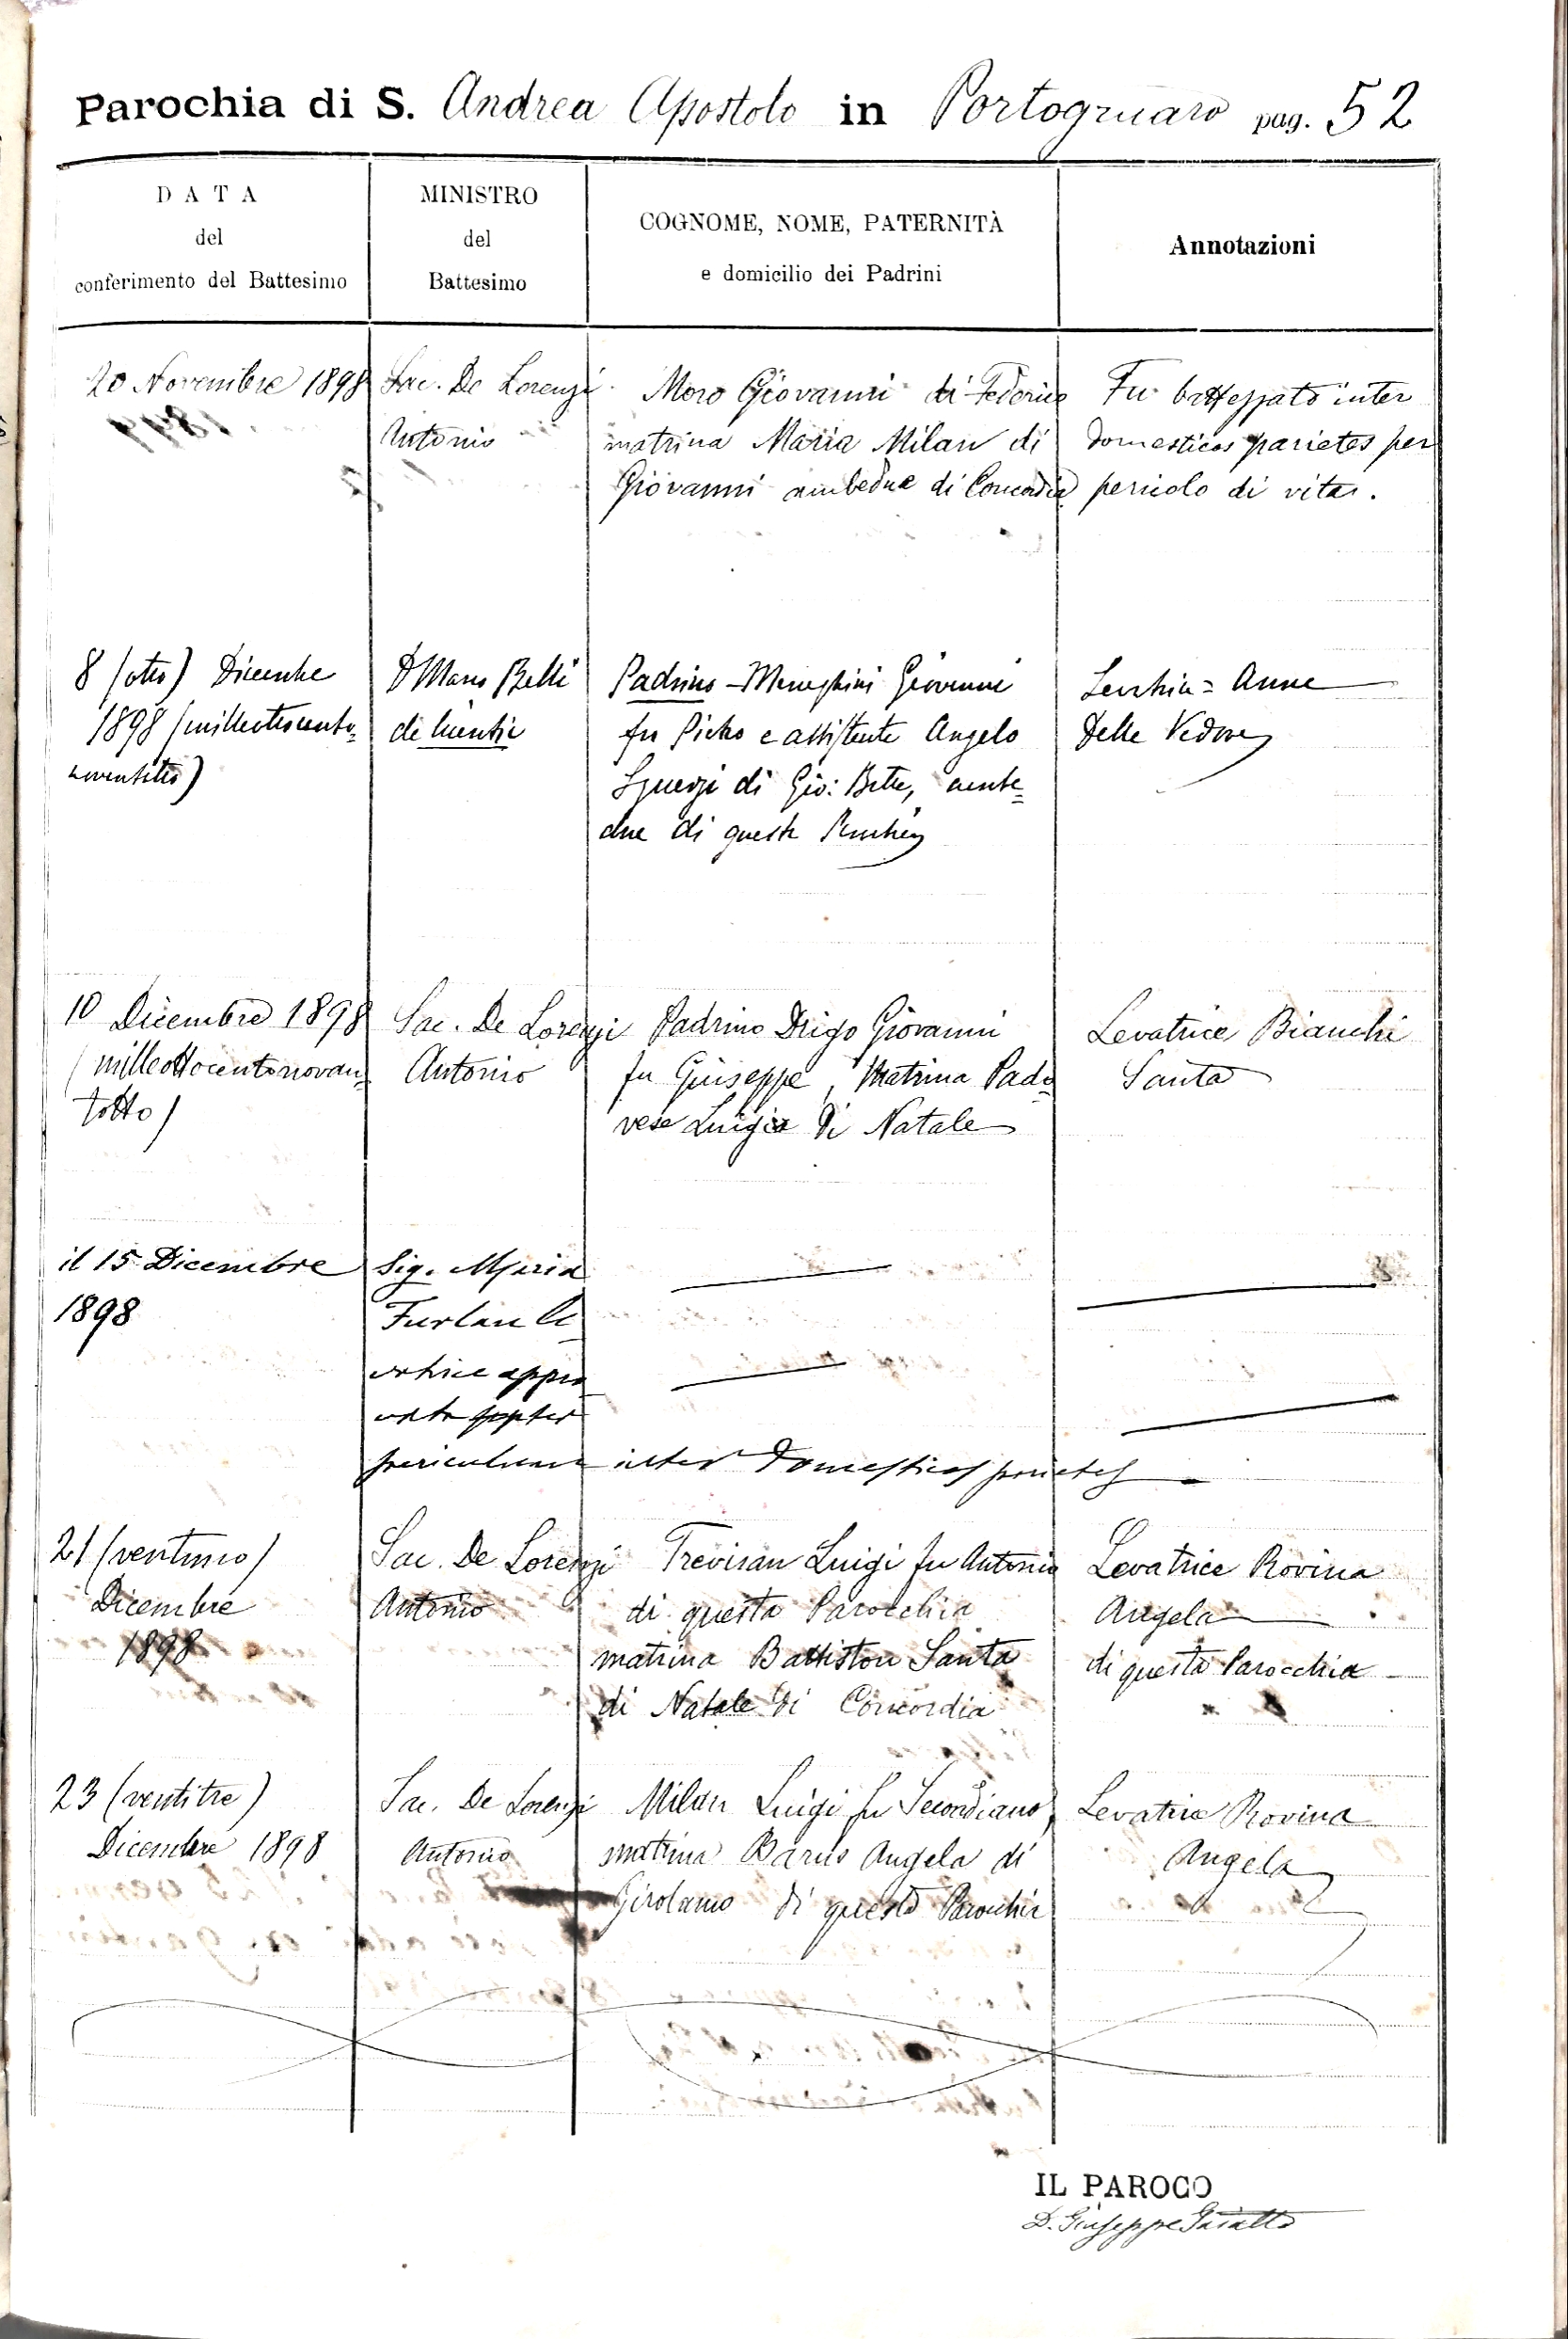 Parochia di S. Andrea Apostolo in Portogruaro pag. 52
DATA
del
conferimento del Battesimo
MINISTRO
del
Battesimo
COGNOME, NOME, PATERNITÀ
e domicilio dei Padrini
Annotazioni
20 Novembre 1898
Sac. De Lorenzi
Antonio
Moro Giovanni di Federico
matrina Maria Milan di
Giovanni ambedue di Concordia
Fu battezzato inter
domesticos parietes per
pericolo di vita.
8 (otto) Dicembre
1898 (milleottocento=
novantotto)
D Marco Belli
di licentia
Padrino - Meneghini Giovanni
fu Pietro e assistente Angelo
di Gio: Batta, ambe=
due di questa Parochia
Levatrice = Anna
Delle Vedove
10 Dicembre 1898
(milleottocentonovan=
totto)
Sac. De Lorenzi
Antonio
Padrino Drigo Giovanni
fu Giuseppe, Matrina Pado=
vese Luigia di Natale
Levatrice Bianchi
Santa
il 15 Dicembre
1898
Sig. Maria
Furlan le
vatrice appro
vata propter
periculum inter domesticos parietes
21 (ventuno)
Dicembre
1898
Sac. De Lorenzi
Antonio
Trevisan Luigi fu Antonio
di questa Parocchia
matrina Battiston Santa
di Natale di Concordia
Levatrice Rovina
Angela
di questa Parocchia
23 (ventitre)
Dicembre 1898
Sac. De Lorenzi
Antonio
Milan Luigi fu Secondiano,
matrina Angela di
Girolamo di questa Parochia
Levatrice Rovina
Angela
IL PAROCO
D. Giuseppe